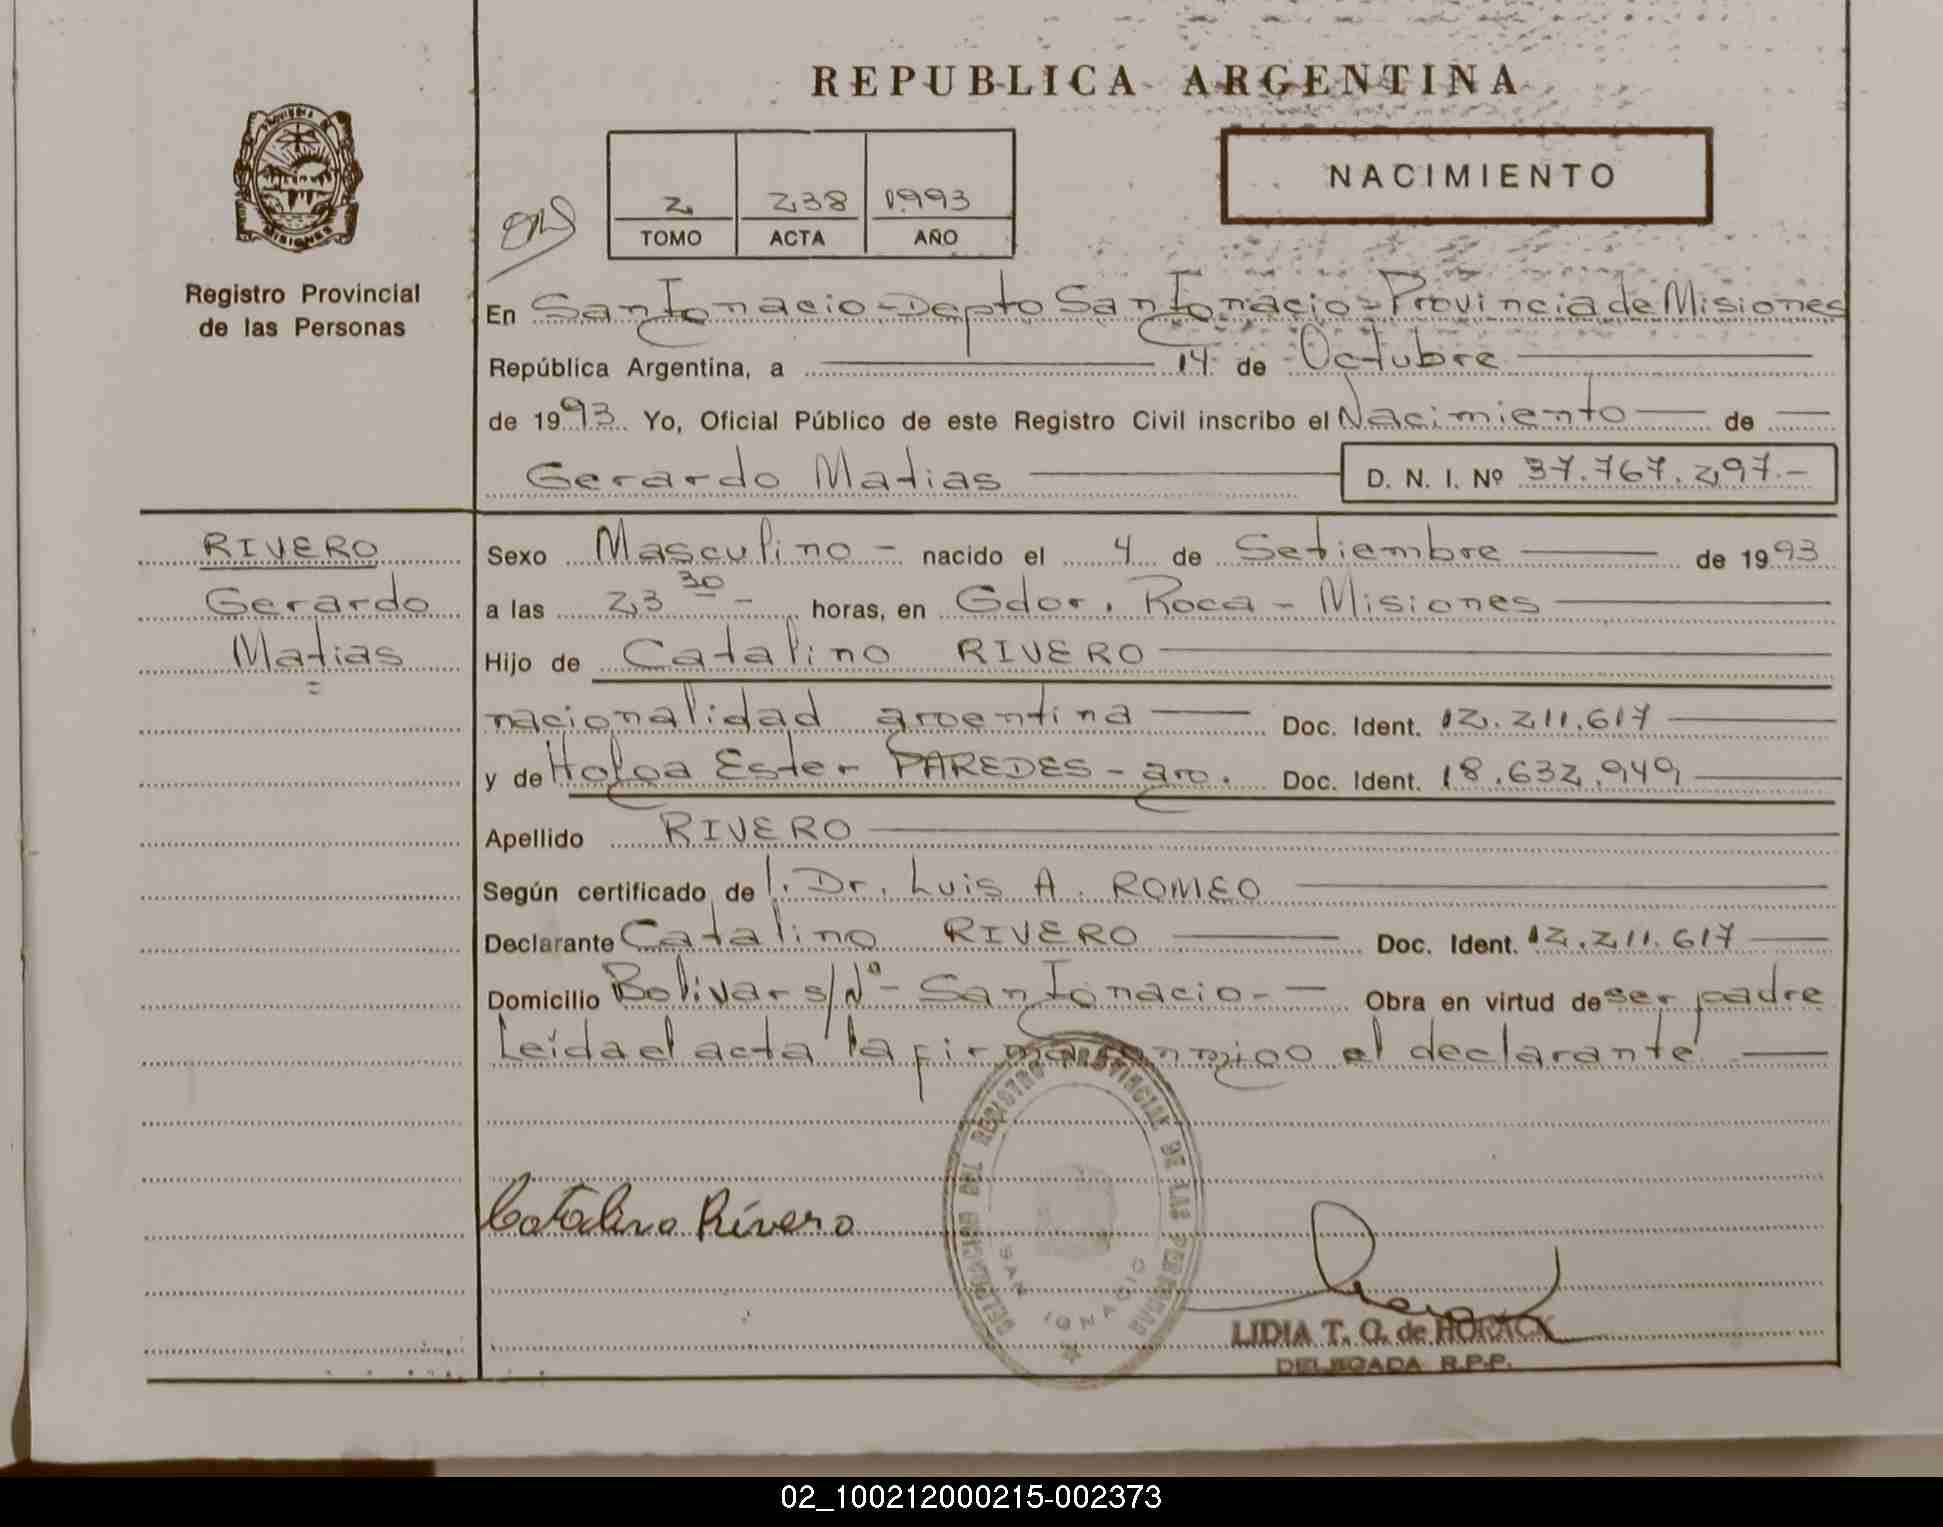 REPUBLICA ARGENTINA
PROVINCIA DE
MISIONES
Registro Provincial
de las Personas
2 238 1993
TOMO ACTA AÑO
NACIMIENTO
En San Ignacio - Depto San Ignacio - Provincia de Misiones
República Argentina, a 14 de Octubre
de 1993 Yo, Oficial Público de este Registro Civil inscribo el Nacimiento de
Gerardo Matias D. N. I. Nº 37.767.297.-
RIVERO
Gerardo
Matias
Sexo Masculino - nacido el 4 de Setiembre de 1993
a las 23 30 - horas, en Gdor. Roca - Misiones
Hijo de Catalino RIVERO
nacionalidad argentina Doc. Ident. 12.211.617
y de Holga Ester PAREDES - arg. Doc. Ident. 18.632.949
Apellido RIVERO
Según certificado de l. Dr. Luis A. ROMEO
Declarante Catalino RIVERO Doc. Ident. 12.211.617
Domicilio Bolivar s/Nº - San Ignacio - Obra en virtud de ser padre
Leída el acta la firma conmigo el declarante
DELEGACION DEL REGISTRO PROVINCIAL DE LAS PERSONAS
SAN IGNACIO
Catalino Rivero
LIDIA T. G. de HORACK
DELEGADA R.P.P.
02_100212000215-002373